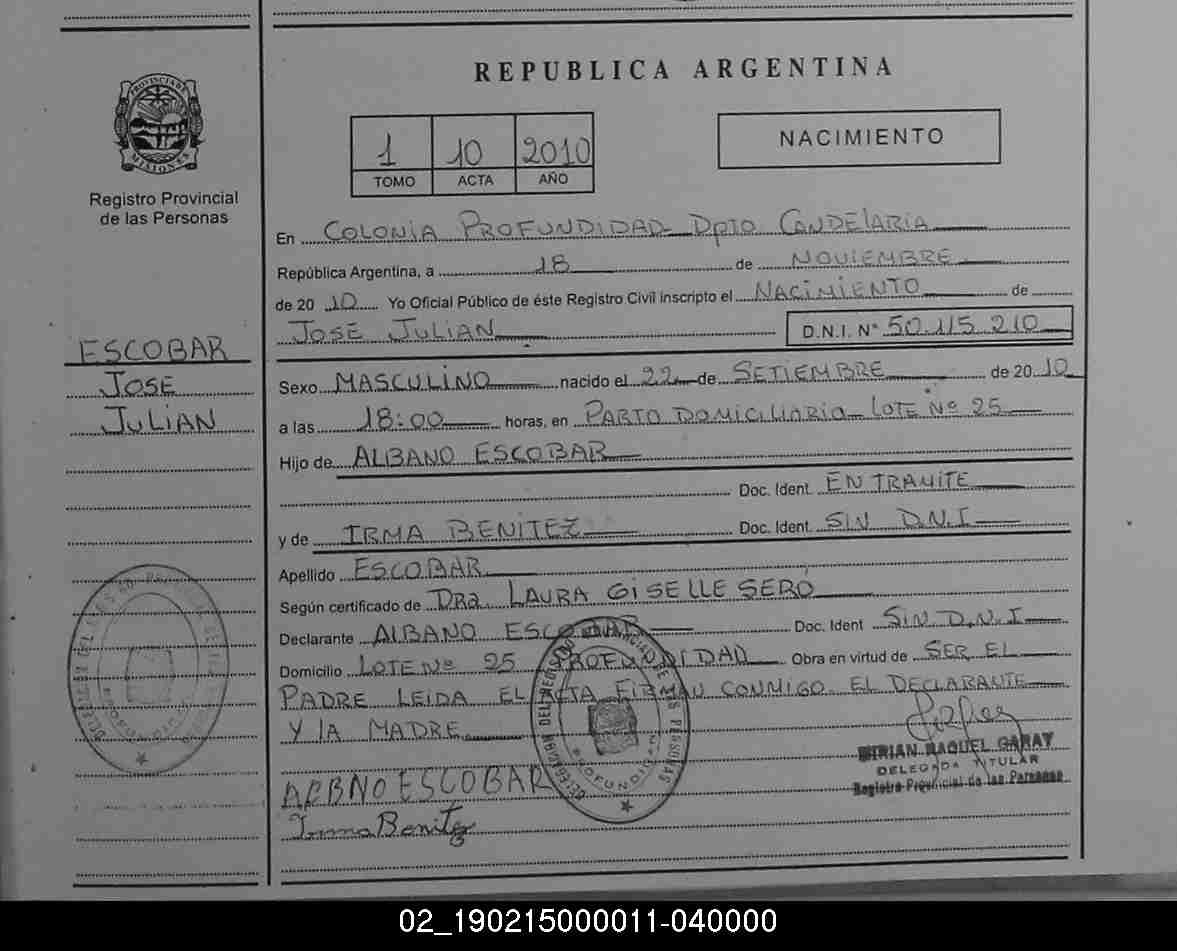 REPUBLICA ARGENTINA
PROVINCIA DE MISIONES
Registro Provincial
de las Personas
1 10 2010
TOMO ACTA AÑO
NACIMIENTO
ESCOBAR
JOSE
JULIAN
En COLONIA PROFUNDIDAD Dpto CANDELARIA
República Argentina, a 18 de NOVIEMBRE
de 20 10 Yo Oficial Público de éste Registro Civil inscripto el NACIMIENTO de
JOSE JULIAN D.N.I. N° 50.115.210
Sexo MASCULINO nacido el 22 de SETIEMBRE de 20 10
a las 18:00 horas, en PARTO DOMICILIARIO LOTE Nº 25
Hijo de ALBANO ESCOBAR
Doc. Ident. EN TRAMITE
y de IRMA BENITEZ Doc. Ident. SIN D.N.I
Apellido ESCOBAR
Según certificado de DRa. LAURA GISELLE SERÓ
Declarante ALBANO ESCOBAR Doc. Ident SIN D.N.I
Domicilio LOTE Nº 25 PROFUNDIDAD Obra en virtud de SER EL
PADRE LEIDA EL ACTA FIRMAN CONMIGO EL DECLARANTE
Y LA MADRE
MIRIAN RAQUEL GARAY
DELEGADA TITULAR
Registro Provincial de las Personas
ALBNO ESCOBAR
Irma Benitez
02_190215000011-040000